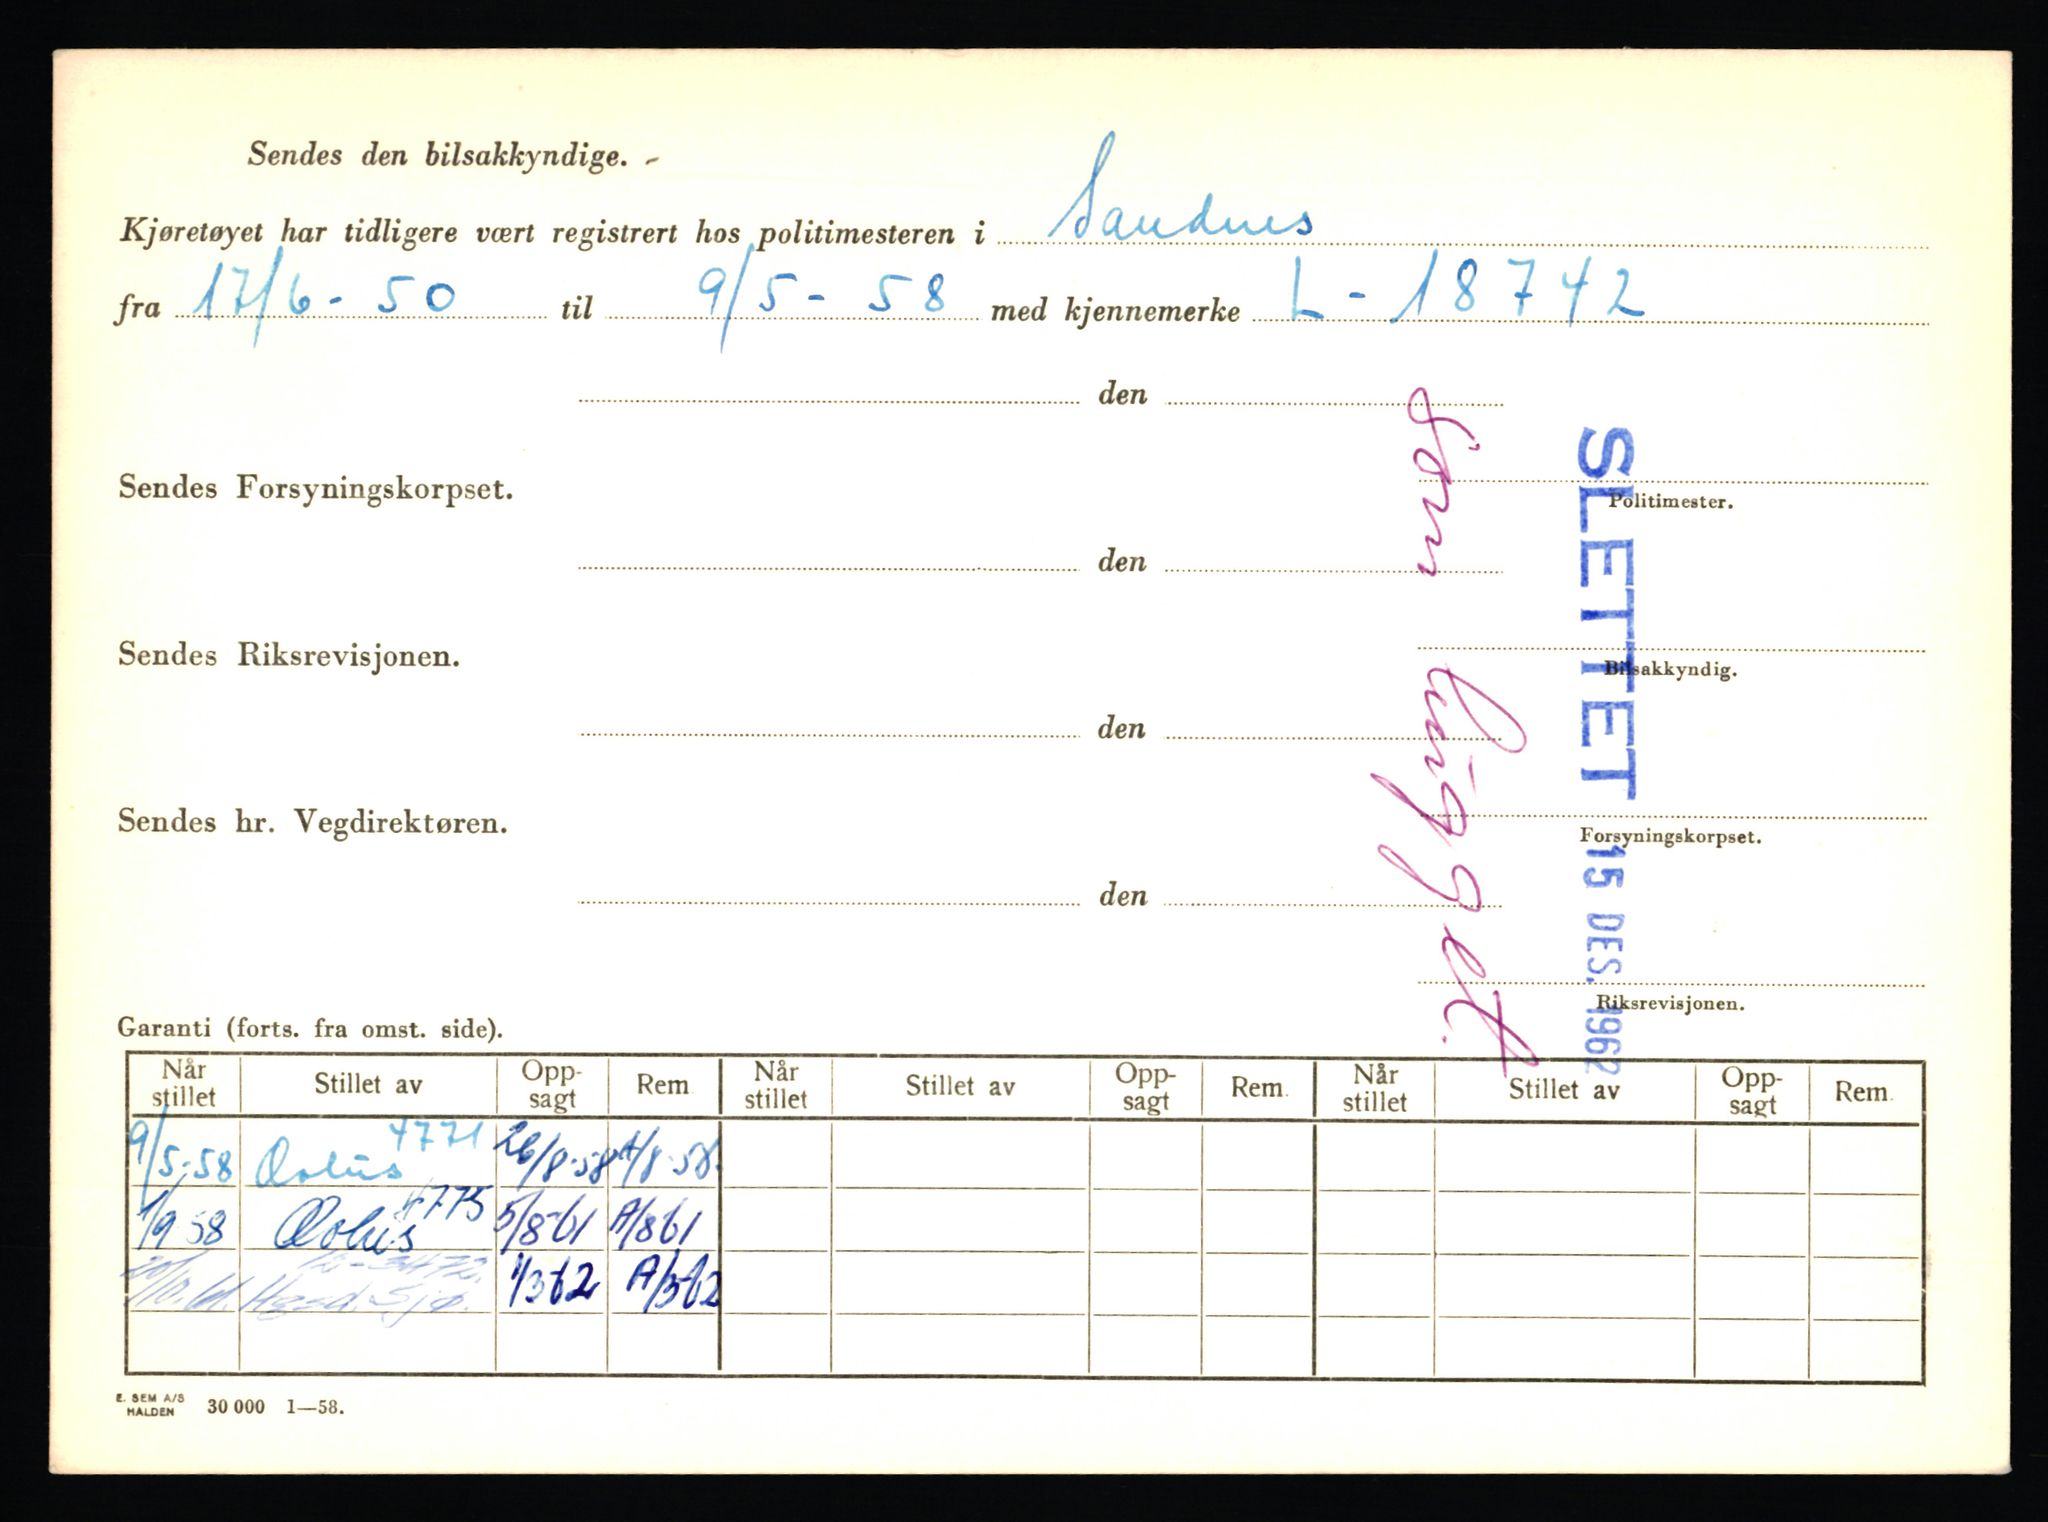 Sendes den bilsakkyndige.
Kjøretøyet har tidligere vært registrert hos politimesteren i Sandnes
fra 17/6-50 til 9/5-58 med kjennemerke L-18742
den
Politimester.
Sendes Forsyningskorpset.
den
Bilsakkyndig.
Sendes Riksrevisjonen.
den
Forsyningskorpset.
Sendes hr. Vegdirektøren.
den
Riksrevisjonen.
Som hugget.
SLETTET 15 DES. 1962
Garanti (forts. fra omst. side).
Når stillet Stillet av Opp-sagt Rem. Når stillet Stillet av Opp-sagt Rem. Når stillet Stillet av Opp-sagt Rem.
9/5-58 Æolus 4771 26/8-58 A/8-58.
1/9 58 Æolus 4775 5/8-61 A/8 61
1/3 62 A/3-62
E. SEM A/S HALDEN 30 000 1—58.